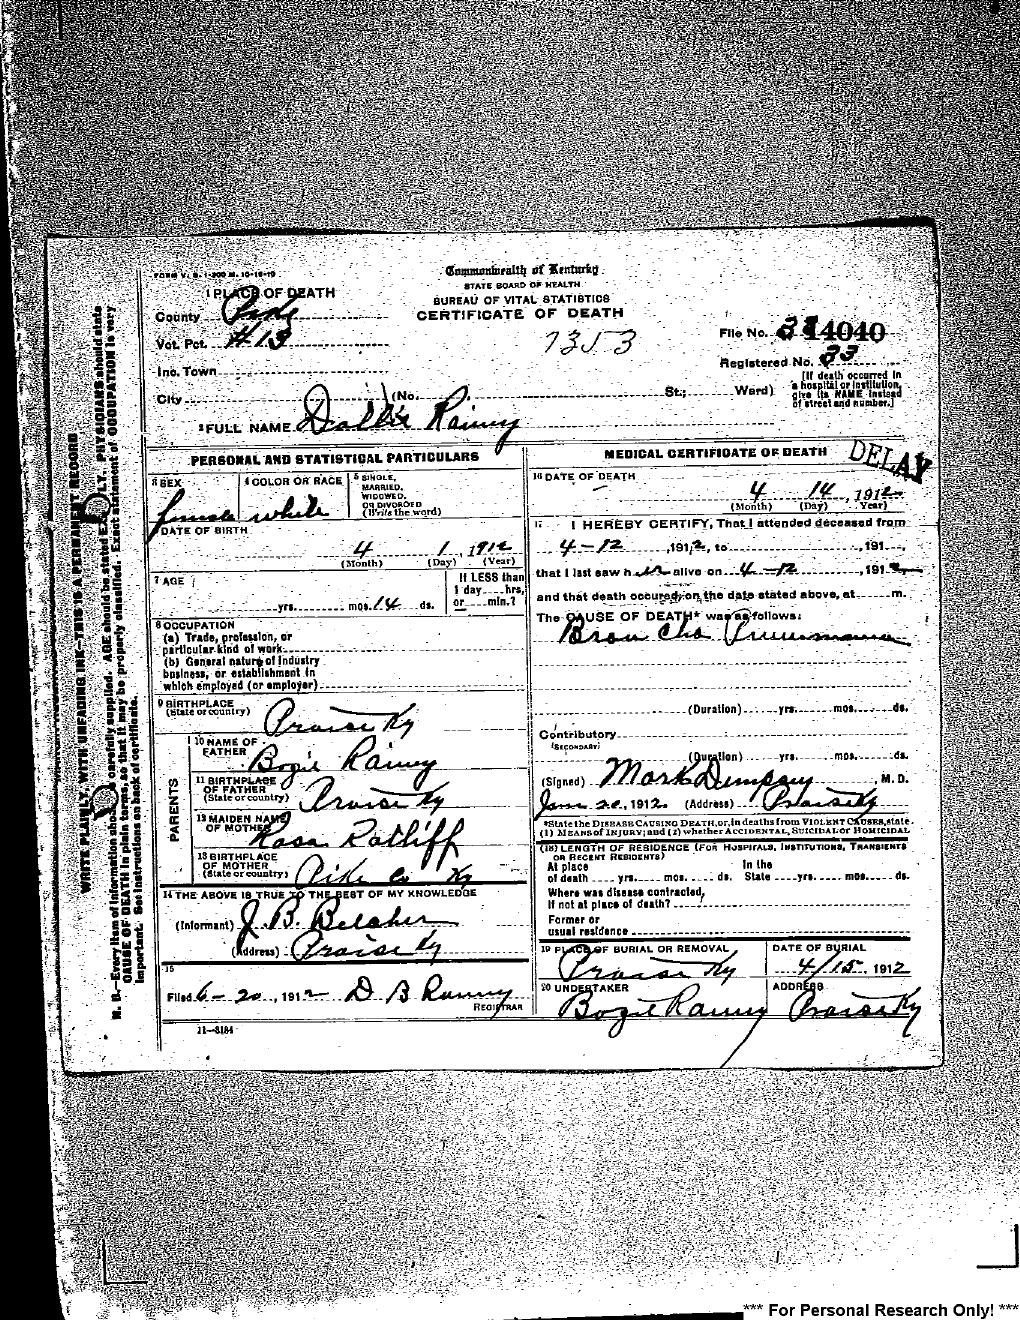 FORM V. S. 1-200 M. 10-19-10
Commonwealth of Kentucky
STATE BOARD OF HEALTH
BUREAU OF VITAL STATISTICS
CERTIFICATE OF DEATH
1 PLACE OF DEATH
County Pike
Vot. Pct. #13
Inc. Town
City (No. St.; Ward)
7353
File No. 14040
Registered No. 33
[If death occurred in
a hospital or institution,
give its NAME instead
of street and number.]
2 FULL NAME Dollie Rainey
DELAY
PERSONAL AND STATISTICAL PARTICULARS
3 SEX
female
4 COLOR OR RACE
white
5 SINGLE,
MARRIED,
WIDOWED,
OR DIVORCED
(Write the word)
DATE OF BIRTH
4 1, 1912
(Month) (Day) (Year)
7 AGE
yrs. mos. 14 ds.
If LESS than
1 day hrs,
or min.?
8 OCCUPATION
(a) Trade, profession, or
particular kind of work
(b) General nature of Industry
business, or establishment in
which employed (or employer)
9 BIRTHPLACE
(State or country) Praise Ky
PARENTS
10 NAME OF
FATHER Bogie Rainey
11 BIRTHPLACE
OF FATHER
(State or country) Praise Ky
12 MAIDEN NAME
OF MOTHER Rosa Ratliff
13 BIRTHPLACE
OF MOTHER
(State or country) Pike Co Ky
14 THE ABOVE IS TRUE TO THE BEST OF MY KNOWLEDGE
(Informant) J. B. Belcher
(Address) Praise Ky
15
Filed 6-20, 1912 D B Ramey
REGISTRAR
11—3184
MEDICAL CERTIFICATE OF DEATH
16 DATE OF DEATH
4 14, 1912
(Month) (Day) (Year)
17 I HEREBY CERTIFY, That I attended deceased from
4-12, 1912, to , 191
that I last saw her alive on 4-12, 1912
and that death occured, on the date stated above, at m.
The CAUSE OF DEATH* was as follows:
Bron Cho
(Duration) yrs. mos. ds.
Contributory
(SECONDARY)
(Duration) yrs. mos. ds.
(Signed) Mark Dempsey, M. D.
20, 1912 (Address) Praise Ky
*State the DISEASE CAUSING DEATH, or, in deaths from VIOLENT CAUSES, state
(1) MEANS of INJURY; and (2) whether ACCIDENTAL, SUICIDAL or HOMICIDAL
(18) LENGTH OF RESIDENCE (FOR HOSPITALS, INSTITUTIONS, TRANSIENTS
OR RECENT RESIDENTS)
At place In the
of death yrs. mos. ds. State yrs. mos. ds.
Where was disease contracted,
If not at place of death?
Former or
usual residence
19 PLACE OF BURIAL OR REMOVAL
Praise Ky
DATE OF BURIAL
4/15, 1912
20 UNDERTAKER
Bogie Ramey
ADDRESS
Praise Ky
WRITE PLAINLY, WITH UNFADING INK—THIS IS A PERMANENT RECORD
N. B.—Every item of information should be carefully supplied. AGE should be stated EXACTLY. PHYSICIANS should state
CAUSE OF DEATH in plain terms, so that it may be properly classified. Exact statement of OCCUPATION is very
important. See instructions on back of certificate.
*** For Personal Research Only! ***